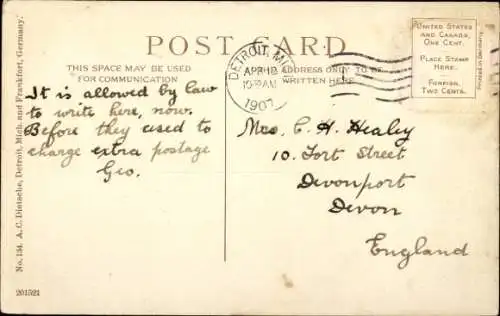 POST CARD
THIS SPACE MAY BE USED
FOR COMMUNICATION
ADDRESS ONLY TO BE
WRITTEN HERE
DETROIT, MICH.
APR 18
10-30 AM
1907
UNITED STATES
AND CANADA,
ONE CENT.
PLACE STAMP
HERE.
FOREIGN,
TWO CENTS.
Printed in Germany.
It is allowed by law
to write here, now.
Before they used to
charge extra postage
Geo.
Mrs. C. H. Healey
10. Fort Street
Devonport
Devon
England
No. 134. A. C. Dietsche, Detroit, Mich. and Frankfort, Germany.
201521